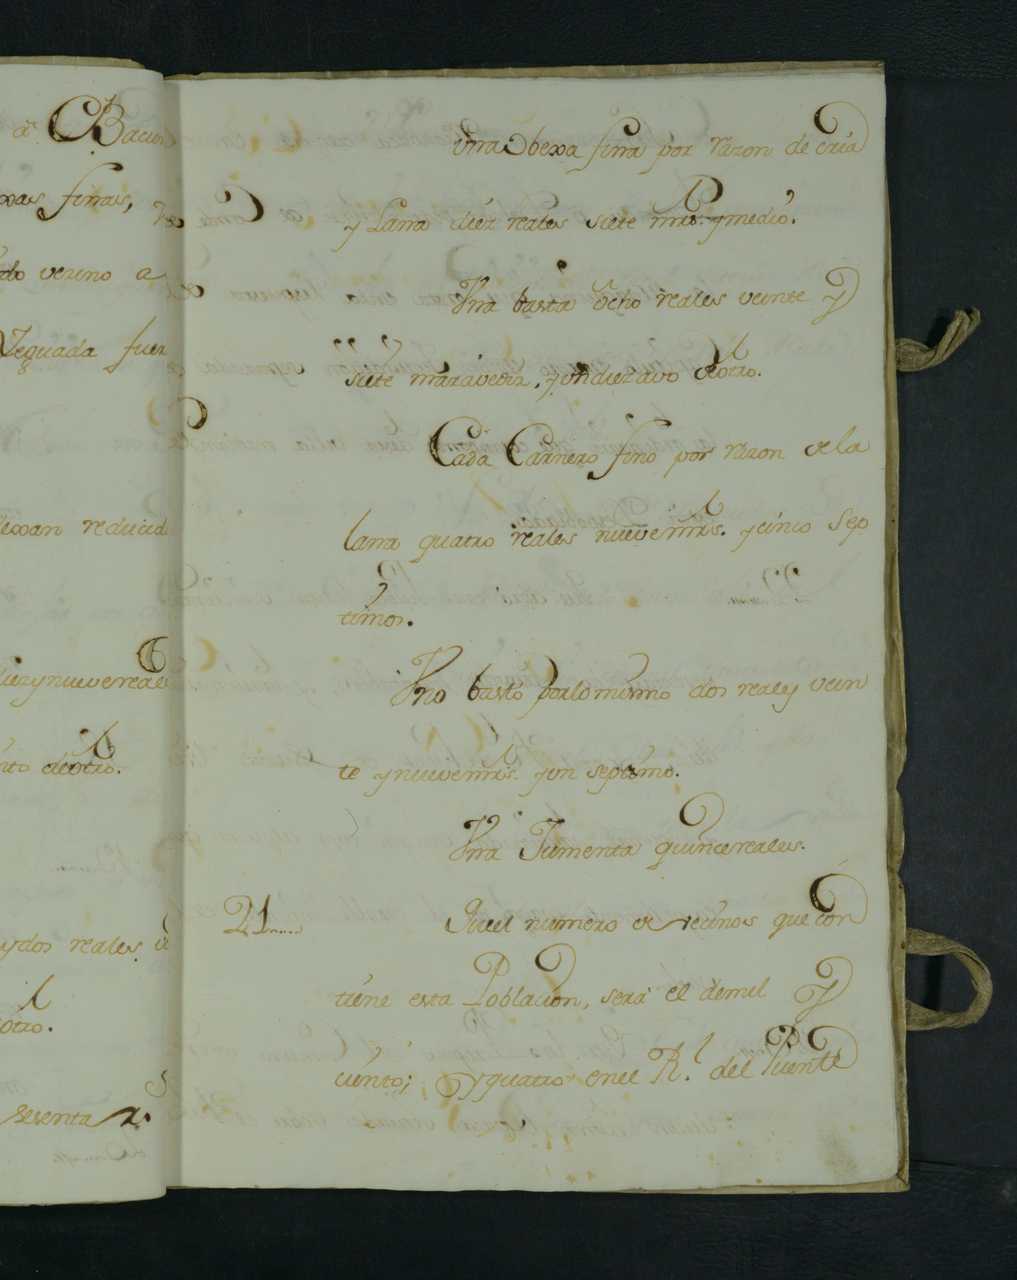 â Bacun
xas finas,
do verino a
Yeguada fuer
exan reducid
diez y nueve reales
nto deotro.
y dos reales
otro.
sesenta
vnna Obexa finna por razon de cria
y Lanna diez reales siete mrs. y medio.
Vna basta ocho reales veinte y
siete maravedis, y un diez avo deotro.
Cada Carnero fino por razon de la
lana quatro reales nueve mrs. y cinco sep
timos.
Vno basto por lo mismo dos reales y vein
te y nueve mrs. y un septimo.
Vna Jumenta quince reales.
21....
Que el numero de vecinos que con
tiene esta Poblacion, será el de mil y
ciento; y quatro en el R.l del Puente